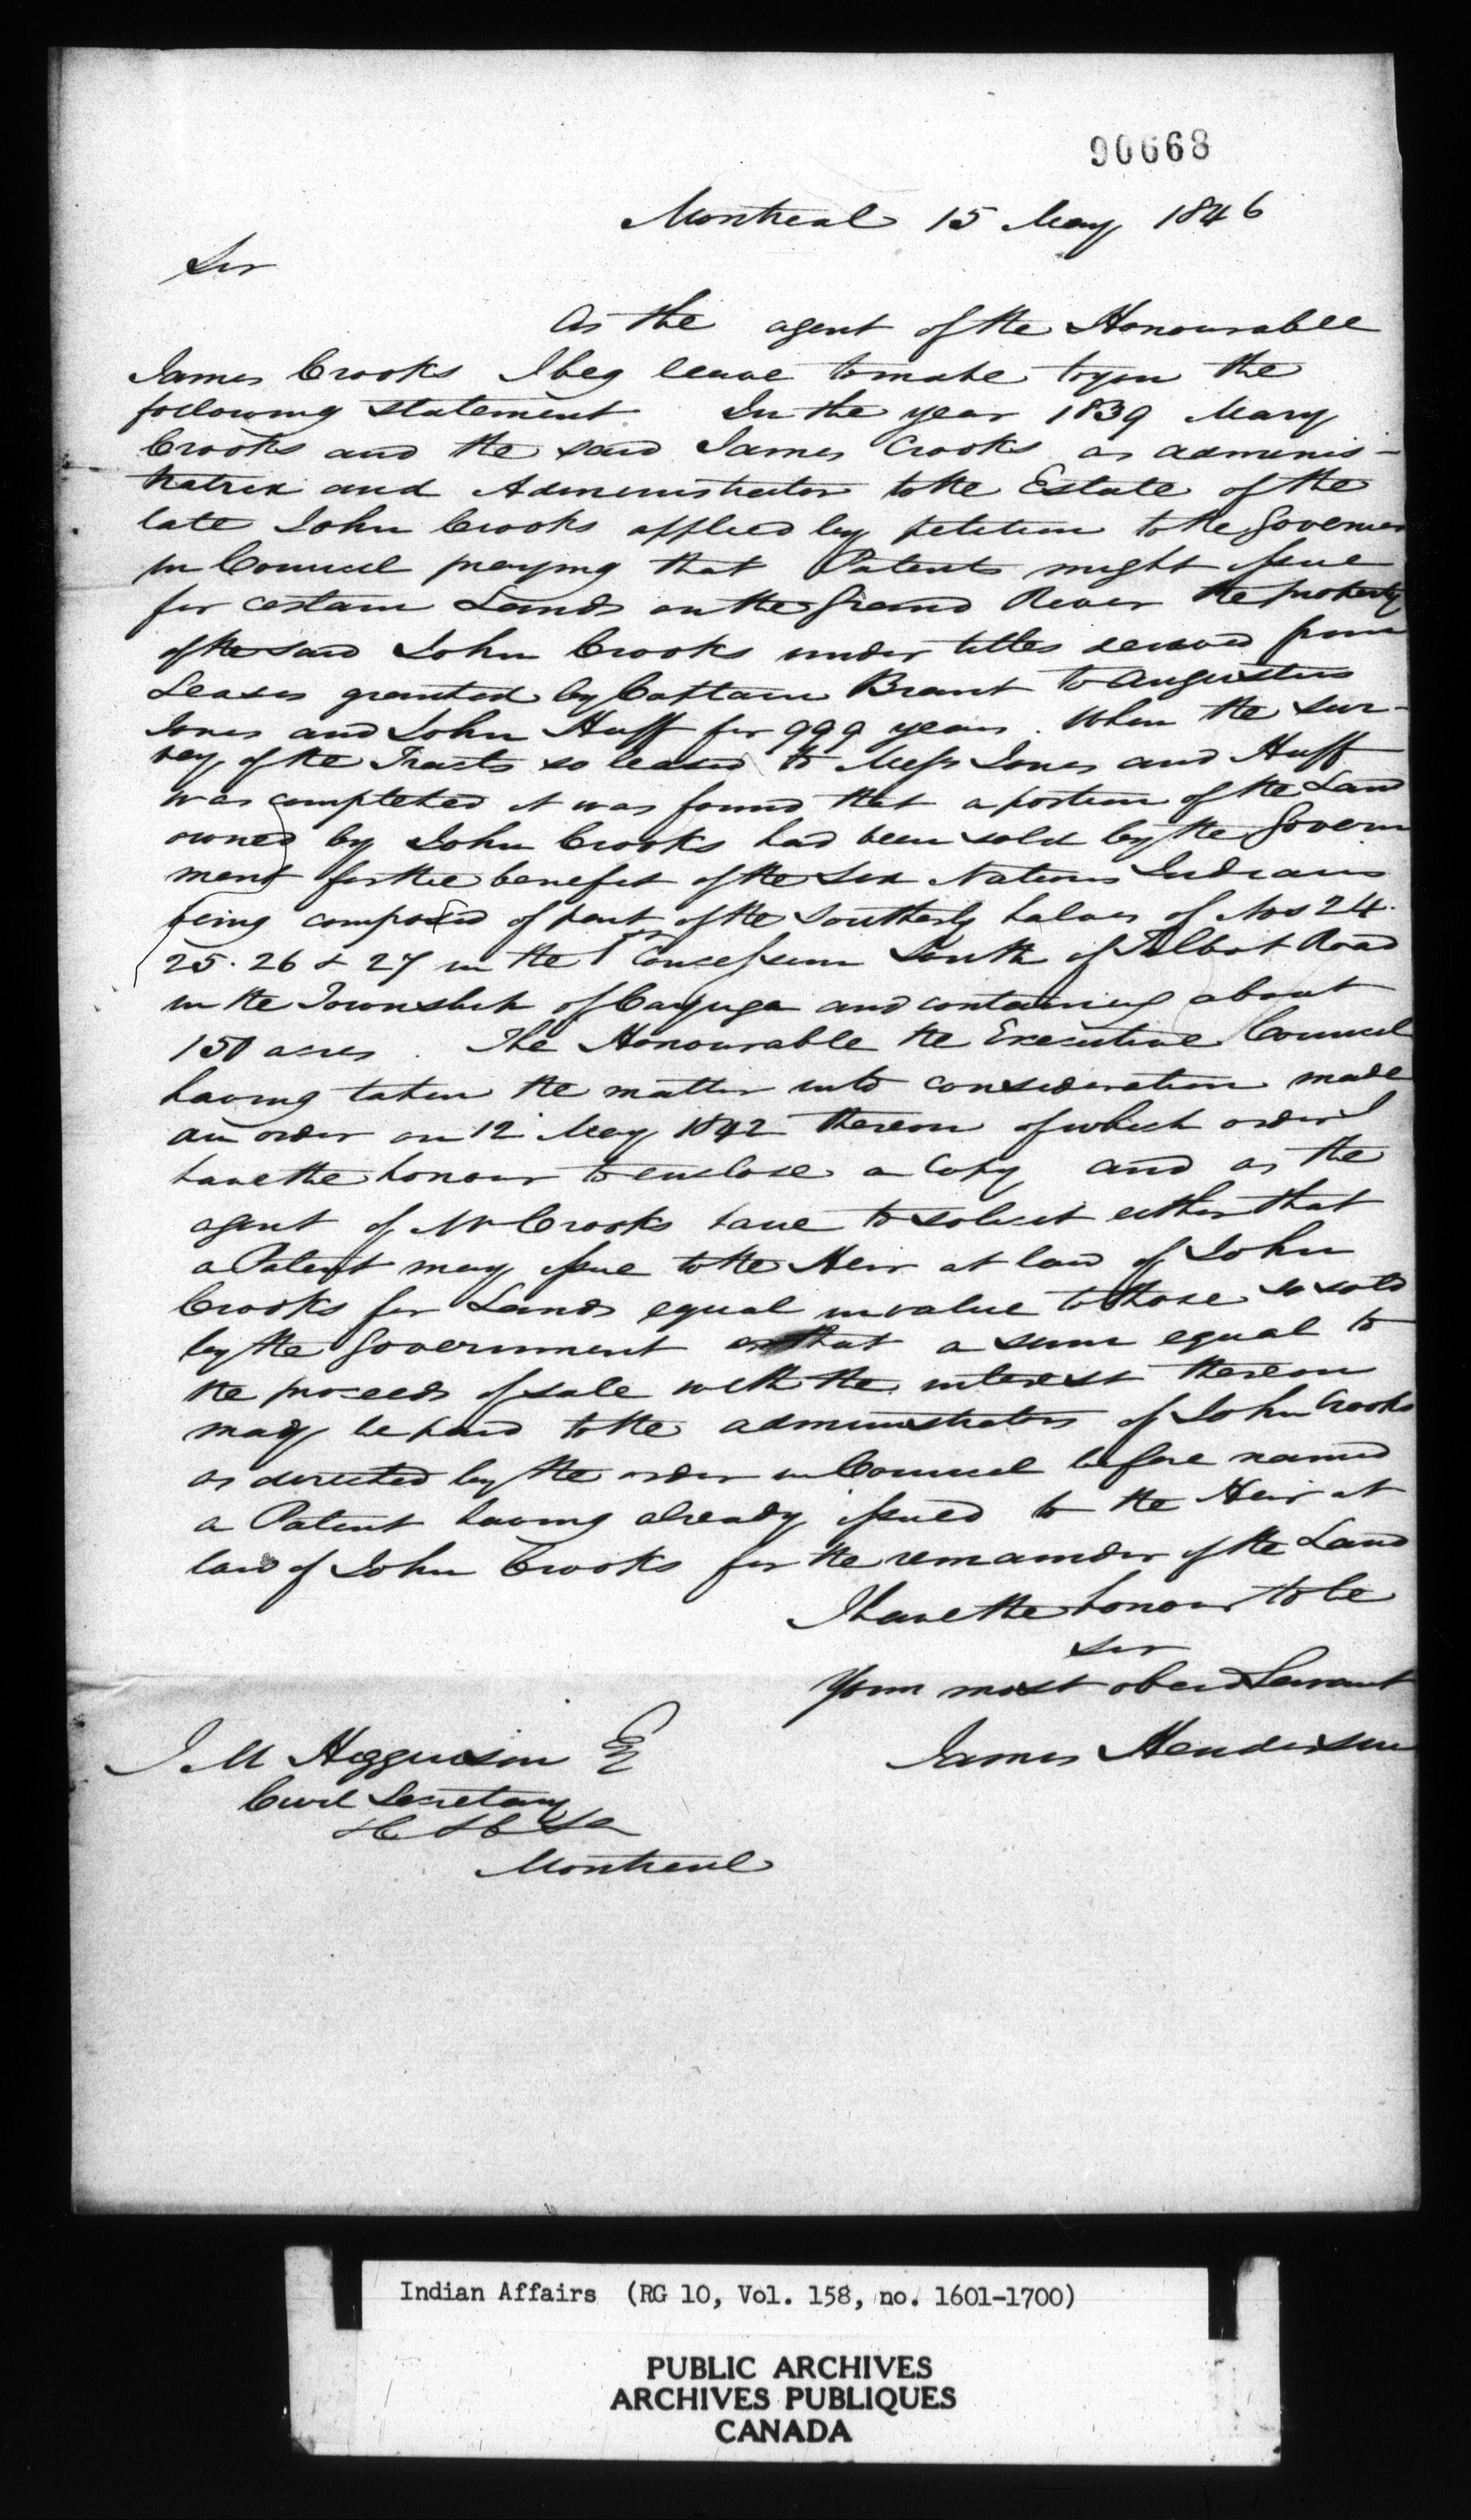 90668
Montreal 15 May 1846
Sir
As the agent of the Honourable
James Crooks I beg leave to make to you the
following statement. In the year 1839 Mary
Crooks and the said James Crooks as adminis-
tratrix and Administrator to the Estate of the
late John Crooks applied by petition to the Governor
in Council praying that Patents might issue
for certain Lands on the Grand River the property
of the said John Crooks under titles derived from
Leases granted by Captain Brant to Augustus
Jones and John Huff for 999 years. When the sur-
vey of the Tracts so leased to Messrs Jones and Huff
was completed it was found that a portion of the Land
owned by John Crooks had been sold by the Govern
ment for the benefit of the Six Nations Indians
being composed of part of the Southerly halves of Nos 24.
25. 26 & 27 in the 1st Concession South of Talbot Road
in the Township of Cayuga and containing about
150 acres. The Honourable the Executive Council
having taken the matter into consideration made
an order on 12 May 1842 thereon of which order I
have the honour to enclose a Copy and as the
agent of Mr Crooks have to solicit either that
a Patent may issue to the Heir at law of John
Crooks for Lands equal in value to those so sold
by the Government or that a sum equal to
the proceeds of sale with the interest thereon
may be paid to the administrators of John Crooks
as directed by the order in Council before named
a Patent having already issued to the Heir at
law of John Crooks for the remainder of the Land
I have the honour to be
Sir
Your most obed Servant
James Henderson
J. M Higginson Esq
Civil Secretary
&c &c &c
Montreal
Indian Affairs (RG 10, Vol. 158, no. 1601-1700)
PUBLIC ARCHIVES
ARCHIVES PUBLIQUES
CANADA